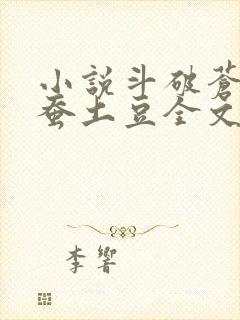 小說斗破蒼
蚕土豆全文
李響